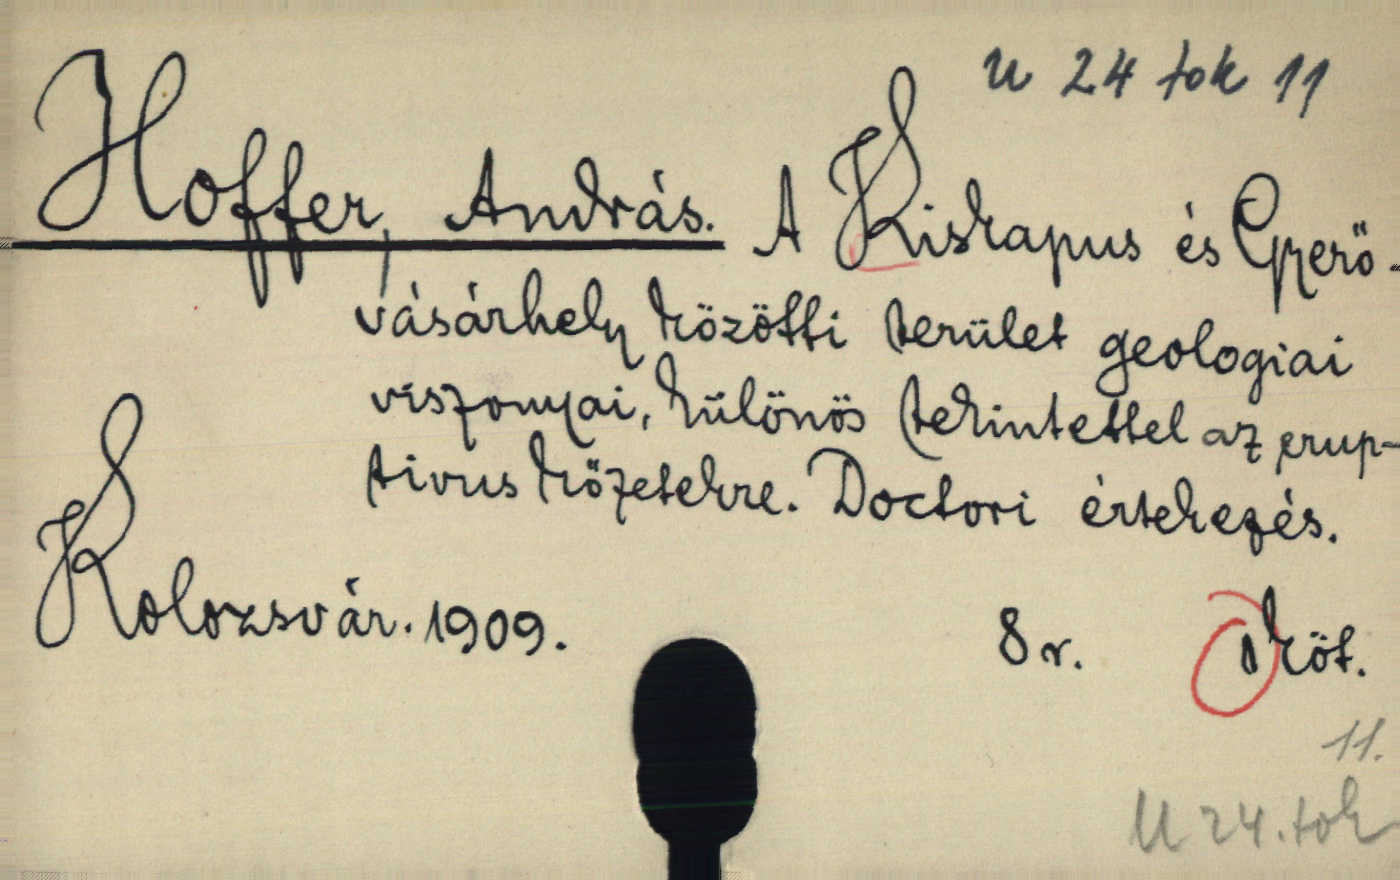 U 24 tok 11
Hoffer, András. A Kiskapus és Gyerő-
vásárhely közötti terület geologiai
viszonyai, különös tekintettel az erup-
tivus kőzetekre. Doctori értekezés.
Kolozsvár. 1909. 8r. 1 köt.
11.
U 24. tok